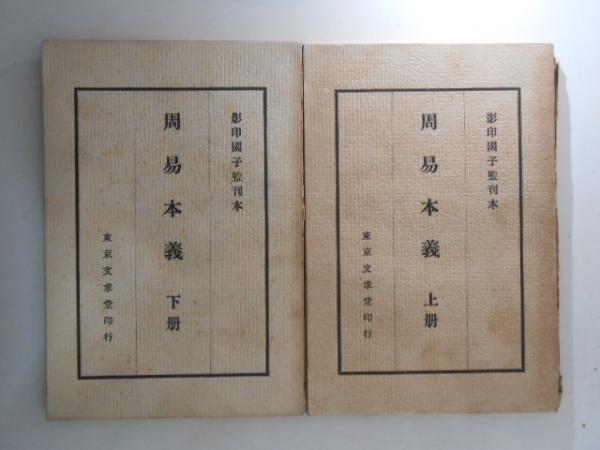 影印國子監刊本
周易本義 上册
東京文求堂印行
影印國子監刊本
周易本義 下册
東京文求堂印行